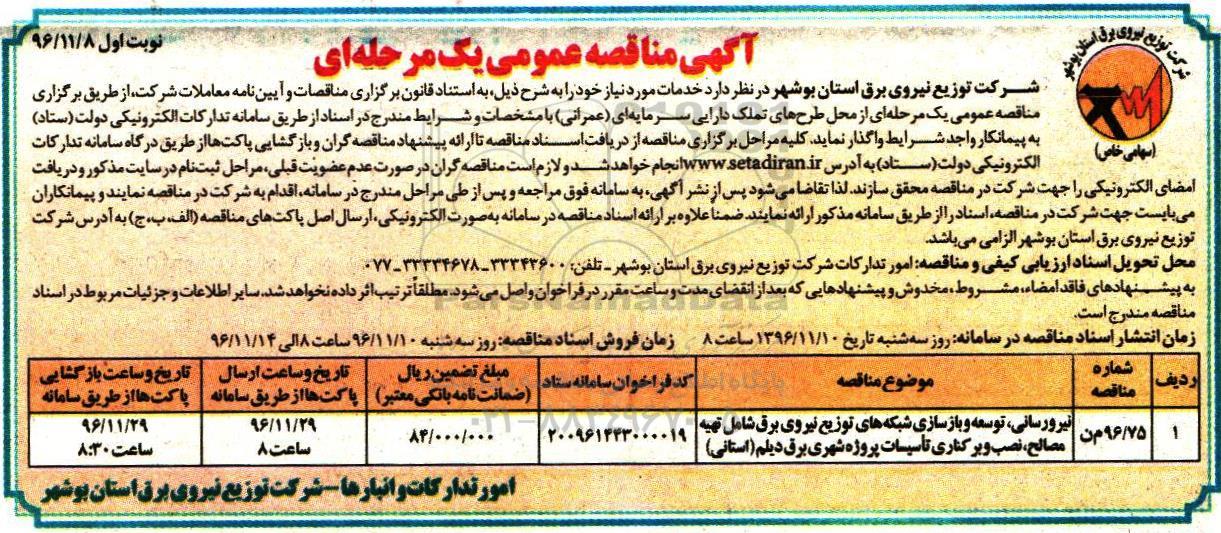 نوبت اول ۹۶/۱۱/۸
آگهی مناقصه عمومی یک مرحله‌ای
شرکت توزیع نیروی برق استان بوشهر
(سهامی خاص)
شرکت توزیع نیروی برق استان بوشهر در نظر دارد خدمات مورد نیاز خود را به شرح ذیل، به استناد قانون برگزاری مناقصات و آیین‌نامه معاملات شرکت، از طریق برگزاری
مناقصه عمومی یک مرحله‌ای از محل طرح‌های تملک دارایی سرمایه‌ای (عمرانی) با مشخصات و شرایط مندرج در اسناد از طریق سامانه تدارکات الکترونیکی دولت (ستاد)
به پیمانکار واجد شرایط واگذار نماید. کلیه مراحل برگزاری مناقصه از دریافت اسناد مناقصه تا ارائه پیشنهاد مناقصه گران و بازگشایی پاکت‌ها از طریق درگاه سامانه تدارکات
الکترونیکی دولت (ستاد) به آدرس www.setadiran.ir انجام خواهد شد و لازم است مناقصه گران در صورت عدم عضویت قبلی، مراحل ثبت‌نام در سایت مذکور و دریافت
امضای الکترونیکی را جهت شرکت در مناقصه محقق سازند. لذا تقاضا می‌شود پس از نشر آگهی، به سامانه فوق مراجعه و پس از طی مراحل مندرج در سامانه، اقدام به شرکت در مناقصه نمایند و پیمانکاران
می‌بایست جهت شرکت در مناقصه، اسناد را از طریق سامانه مذکور ارائه نمایند. ضمناً علاوه بر ارائه اسناد مناقصه در سامانه به‌صورت الکترونیکی، ارسال اصل پاکت‌های مناقصه (الف، ب، ج) به آدرس شرکت
توزیع نیروی برق استان بوشهر الزامی می‌باشد.
محل تحویل اسناد ارزیابی کیفی و مناقصه: امور تدارکات شرکت توزیع نیروی برق استان بوشهر ـ تلفن: ۳۳۳۴۳۶۰۰ ـ ۳۳۳۳۴۶۷۸ ـ ۰۷۷
به پیشنهادهای فاقد امضاء، مشروط، مخدوش و پیشنهادهایی که بعد از انقضای مدت و ساعت مقرر در فراخوان واصل می‌شود، مطلقاً ترتیب اثر داده نخواهد شد. سایر اطلاعات و جزئیات مربوط در اسناد
مناقصه مندرج است.
زمان انتشار اسناد مناقصه در سامانه: روز سه‌شنبه تاریخ ۱۳۹۶/۱۱/۱۰ ساعت ۸ زمان فروش اسناد مناقصه: روز سه شنبه ۹۶/۱۱/۱۰ ساعت ۸ الی ۹۶/۱۱/۱۴
ردیف شماره مناقصه موضوع مناقصه کد فراخوان سامانه ستاد مبلغ تضمین ریال (ضمانت نامه بانکی معتبر) تاریخ و ساعت ارسال پاکت‌ها از طریق سامانه تاریخ و ساعت بازگشایی پاکت‌ها از طریق سامانه
۱ ۹۶/۷۵ م ن نیرورسانی، توسعه و بازسازی شبکه‌های توزیع نیروی برق شامل تهیه مصالح، نصب و برکناری تأسیسات پروژه شهری برق دیلم (استانی) ۲۰۰۹۶۱۴۴۳۰۰۰۰۱۹ ۸۴/۰۰۰/۰۰۰ ۹۶/۱۱/۲۹ ساعت ۸ ۹۶/۱۱/۲۹ ساعت ۸:۳۰
امور تدارکات و انبارها – شرکت توزیع نیروی برق استان بوشهر